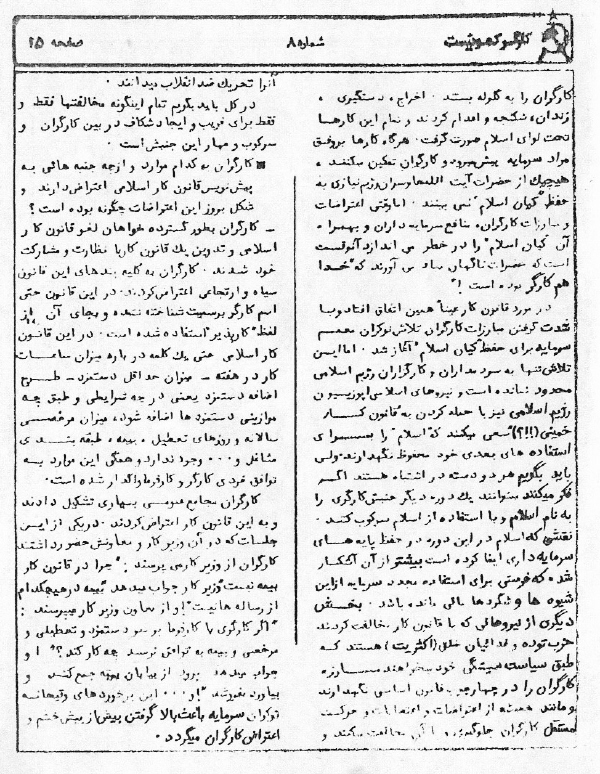 کارگر کمونیست
شماره ۸
صفحه ۱۵
کارگران را به گلوله بستند . اخراج ، دستگیری ،
زندان، شکنجه و اعدام کردند و تمام این کارها
تحت لوای اسلام صورت گرفت . هرگاه کارها بر وفق
مراد سرمایه پیش میرود و کارگران تمکین میکنند ،
هیچیک از حضرات آیت الله‌ها و سران رژیم نیازی به
حفظ "کیان اسلام" نمی بینند . اما وقتی اعتراضات
و مبارزات کارگران، منافع سرمایه داران و بهمراه
آن کیان اسلام" را در خطر می اندازد آنوقت
است که حضرات ناگهان بیاد می آورند که "خدا
هم کارگر بوده است !"
در مورد قانون کار عیناً همین اتفاق افتاد و با
شدت گرفتن مبارزات کارگران تلاش نوکران معمم
سرمایه برای حفظ "کیان اسلام" آغاز شد . اما این
تلاش تنها به سردمداران و کارگزاران رژیم اسلامی
محدود نمانده است و نیروهای اسلامی اپوزیسیون
رژیم اسلامی نیز با حمله کردن به "قانون کار
خمینی (!!؟) سعی میکنند که "اسلام" را بسرای
استفاده های بعدی خود محفوظ نگهدارند . ولی
باید بگویم هر دو دسته در اشتباه هستند اگر
فکر میکنند میتوانند یک دوره دیگر جنبش کارگری را
به نام اسلام و با استفاده از اسلام سرکوب کنند .
نقشی که اسلام در این دوره در حفظ پایه های
سرمایه داری ایفا کرده است بیشتر از آن آشکار
شده که فرصتی برای استفاده مجدد سرمایه از این
شیوه ها و شگردها باقی مانده باشد . بخش
دیگری از نیروهائی که با قانون کار مخالفت کردند
حزب توده و فدائیان خلق (اکثریت) هستند که
طبق سیاست همیشگی خود میخواهند مبارزه
کارگران را در چهارچوب قانون اساسی نگهدارند
و مانند همیشه از اعتراضات و اعتصابات و حرکت
مستقل کارگران جلوگیری و با آن مخالفت میکنند و
آنرا تحریک ضد انقلاب میدانند .
در کل باید بگویم تمام اینگونه مخالفتها فقط و
فقط برای فریب و ایجاد شکاف در بین کارگران و
سرکوب و مهار این جنبش است .
■ کارگران به کدام موارد و از چه جنبه هائی به
پیش نویس قانون کار اسلامی اعتراض دارند و
شکل بروز این اعتراضات چگونه بوده است ؟
- کارگران بطور گسترده خواهان لغو قانون کار
اسلامی و تدوین یک قانون کار با نظارت و مشارکت
خود شدند . کارگران به کلیه بندهای این قانون
سیاه و ارتجاعی اعتراض کردند . در این قانون حتی
اسم کارگر برسمیت شناخته نشده و بجای آن از
لفظ "کارپذیر" استفاده شده است . در این قانون
کار اسلامی حتی یک کلمه در باره میزان ساعات
کار در هفته - میزان حداقل دستمزد - طرح
اضافه دستمزد یعنی در چه شرایطی و طبق چه
موازینی دستمزدها اضافه شود، میزان مرخصی
سالانه و روزهای تعطیل ، بیمه ، طبقه بندی
مشاغل و ۰۰۰ وجود ندارد و همگی این موارد به
توافق فردی کارگر و کارفرما واگذار شده است .
کارگران مجامع عمومی بسیاری تشکیل دادند
و به این قانون کار اعتراض کردند . در یکی از این
جلسات که در آن وزیر کار و معاونش حضور داشتند
کارگران از وزیر کار می پرسند : "چرا در قانون کار
بیمه نیست" وزیر کار جواب میدهد "بیمه در هیچکدام
از رساله ها نیست" ! و از معاون وزیر کار میپرسند :
"اگر کارگری با کارفرما بر سر دستمزد و تعطیلی و
مرخصی و بیمه به توافق نرسید چه کار کند ؟" او
جواب میدهد برود از بیابان بوته جمع کند و
بیاورد بفروشد "! و ۰۰۰ این برخوردهای وقیحانه
نوکران سرمایه باعث بالا گرفتن بیش از پیش خشم و
اعتراض کارگران میگردد .